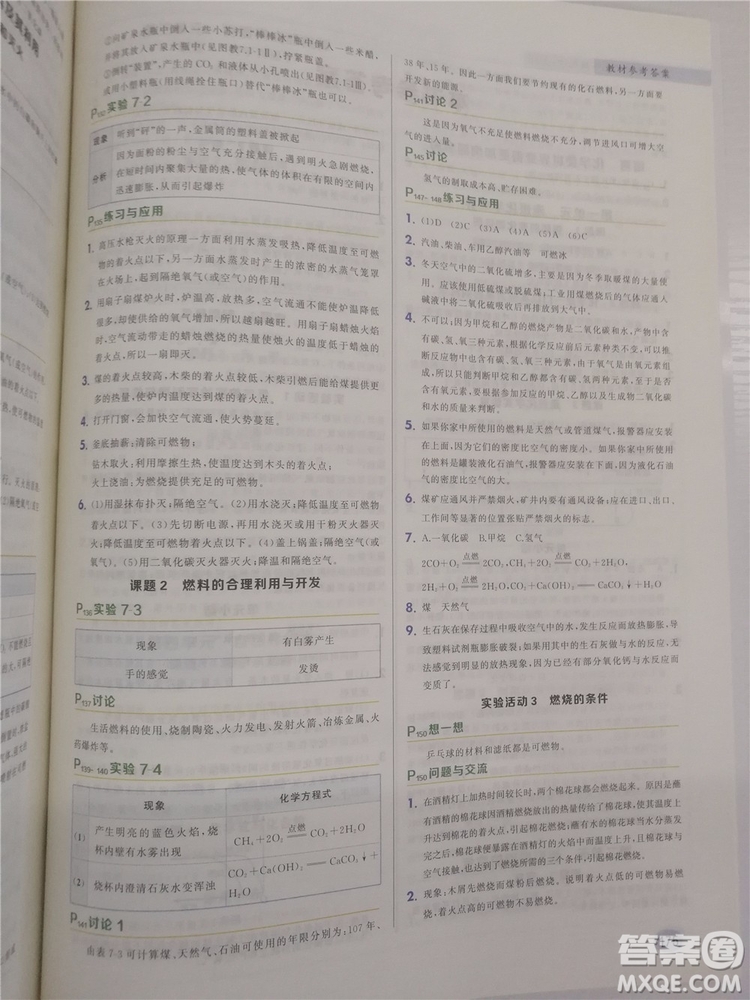 ②向矿泉水瓶中倒入一些小苏打，“棒棒冰”瓶中倒入一些米醋，
并将其放入矿泉水瓶中（见图教7.1-Ⅱ），旋紧瓶盖。
③倒转“装置”，产生的CO₂从小孔喷出（见图教7.1-Ⅲ）。或
用小塑料瓶（用线绳拴住瓶口）替代“棒棒冰”瓶也可以。
P132实验7-2
现象 听到“砰”的一声，金属筒的塑料盖被掀起
分析 因为面粉的粉尘与空气充分接触后，遇到明火急剧燃烧，
在短时间内聚集大量的热，使气体的体积在有限的空间内
迅速膨胀，从而引起爆炸
P135练习与应用
1. 高压水枪灭火的原理一方面利用水蒸发吸热，降低温度至可燃
物的着火点以下，另一方面水蒸发时产生的浓密的水蒸气笼罩
在火场上，起到隔绝氧气（或空气）的作用。
2. 用扇子扇煤炉火时，炉温高，放热多，空气流通不能使温度降低，
却能使供给的氧气增多，所以越扇越旺。用扇子扇蜡烛火焰
时，空气流动带走的蜡烛燃烧的热量使蜡烛的温度低于蜡烛的
着火点，所以一扇即灭。
3. 煤的着火点较高，木柴的着火点较低，木柴燃烧后能给煤提供热
量，使炉内温度达到煤的着火点。
4. 打开门窗，会加快空气流通，使火势蔓延。
5. 釜底抽薪：清除可燃物；
钻木取火：利用摩擦生热，使温度达到木材的着火点；
火上浇油：为燃烧提供充足的可燃物。
6. （1）用湿抹布扑灭：隔绝空气。（2）用水浇灭：降低温度至可燃物
的着火点以下。（3）先切断电源，再用水浇灭或用干粉灭火器灭
火或用二氧化碳灭火器灭火。（4）盖上锅盖：隔绝空气（或
氧气）。（5）用二氧化碳灭火器灭火：降温和隔绝空气。
课题2 燃料的合理利用与开发
P136实验7-3
现象 有白雾产生
手的感觉 发烫
P137讨论
生活燃料的使用、烧制陶瓷、火力发电、发射火箭、冶炼金属、火
药爆炸等。
P139-140实验7-4
现象 化学方程式
（1） 产生明亮的蓝色火焰，烧
杯内壁有水雾出现
CH₄+2O₂ 点燃 CO₂+2H₂O
（2） 烧杯内澄清石灰水变浑浊
CO₂+Ca(OH)₂ ══ CaCO₃↓+H₂O
P141讨论1
由表7-3可计算煤、天然气、石油可使用的年限分别为：107年、
教材参考答案
38年、15年。因此一方面我们要节约现有的化石燃料，另一方面要
开发新的能源。
P141讨论2
这是因为氧气不充足使燃料燃烧不充分，调节进风口可增大空
气的进入量。
P145讨论
氢气的制取成本高、贮存困难。
P147-148练习与应用
1. （1）D （2）C （3）A （4）A （5）A
2. 汽油、柴油、车用乙醇汽油等 可燃冰
3. 冬天空气中的二氧化硫增多，主要是因为冬季取暖煤的用量
增大。应使用低硫煤或脱硫煤；工业用煤燃烧后的气体应通入
碱液中将二氧化硫吸收后再排放到大气中。
4. 不可以，因为甲烷和乙醇的燃烧产物是二氧化碳和水，其中含
有碳、氢、氧三种元素，根据化学反应前后元素种类不变，氧气
只能提供氧元素，而碳、氢、氧三种元素中，氧元素可由氧气提
供，所以只能判断甲烷和乙醇中都有碳、氢两种元素，而对氧元
素不能作出判断，故甲烷和乙醇的组成不能依据生成二氧化碳
和水的质量来判断。
5. 如果你家中用的燃料是天然气或管道煤气，报警器应安在燃具
上方，因为它们的密度比空气的密度小。如果你家中所用的燃
料是罐装液化石油气，报警器应安在燃具下方，因为液化石油
气的密度比空气的密度大。
6. 煤矿应通风并严禁烟火，矿井内要有通风设备，并在出口、入口、
工作间等显著的位置张贴严禁烟火的标志。
7. A.一氧化碳 B.甲烷 C.氢气
2CO+O₂ 点燃 2CO₂ CH₄+2O₂ 点燃 CO₂+2H₂O
2H₂+O₂ 点燃 2H₂O CO₂+Ca(OH)₂ ══ CaCO₃↓+H₂O
8. 煤 天然气
9. 生石灰在保存过程中吸收空气中的水，发生反应而放热膨胀，
导致塑料试剂瓶膨胀破裂；如果用其中的生石灰做与水的反应，无
法感受到明显的放热现象，因为大部分氧化钙已与水反应而
变质了。
实验活动3 燃烧的条件
P150想一想
乒乓球的材料和滤纸都是可燃物。
P150问题与交流
1. 在酒精灯上加热时间较长时，两个棉花球都会燃烧起来。虽然蘸
有酒精的棉花球因酒精燃烧而燃烧，蘸水的棉花球当水分蒸发
2. 现象：木屑先燃烧而煤粉后燃烧，原因是木屑的着火点低易燃
烧，煤的着火点高不易燃烧。
答案圈
MXQE.COM